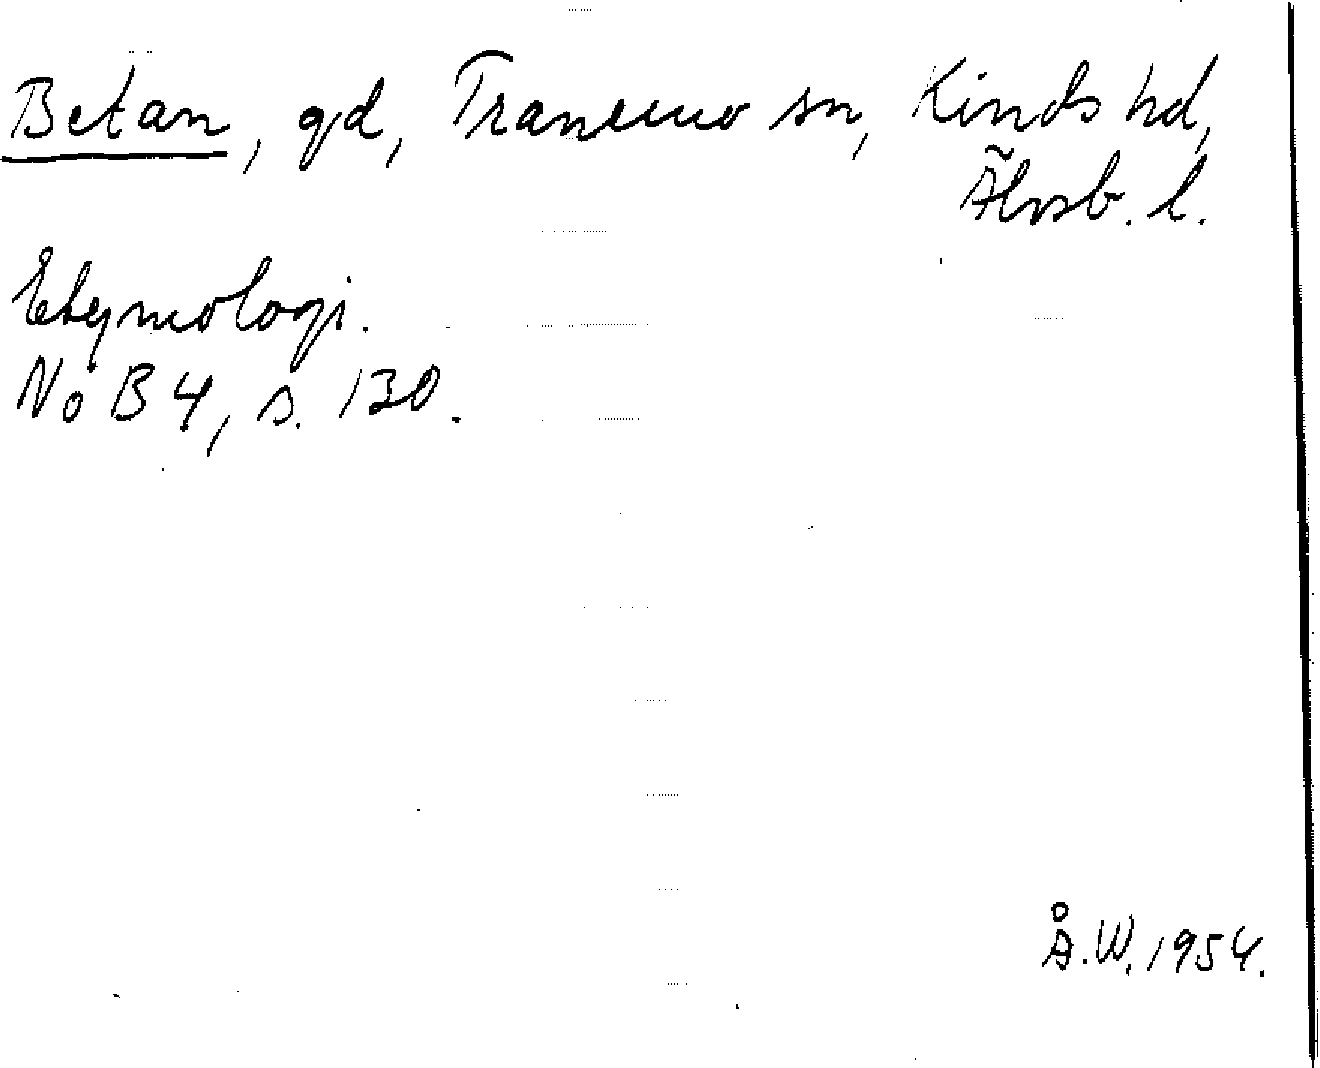 Betan, gd, Tranemo sn, Kinds hd,
Älvsb. l.
Etymologi.
NoB 4, s. 130.
Å.W. 1954.